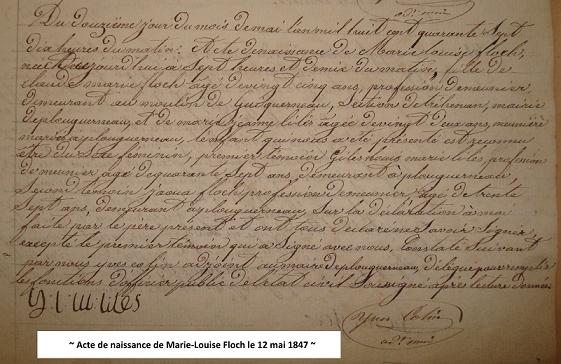 adj. mire
Du douzième jour du mois de mai l'an mil huit cent quarante Sept
dix heures du matin. Acte de naissance de Marie Louise floch,
née aujourd'hui à Sept heures et demie du matin, fille de
claude marie floch âgé de vingt cinq ans, profession de meunier,
demeurant au moulin de Section de trémenan, mairie
de plouguerneau, et de marie jeanne liles âgée de vingt deux ans, meunière
mariés à plouguerneau, lenfant qui nous a été présenté est reconnu
être du Sexe féminin, premier témoin marie liles, profession
de meunier âgé de quarante Sept ans, demeurant à plouguerneau,
Second témoin floch profession de meunier âgé de trente
Sept ans, demeurant à plouguerneau, Sur la déclaration à moi
faite par le père présent et ont tous déclaré ne Savoir Signer,
excepté le premier témoin qui a Signé avec nous, Constaté Suivant
par nous yves adjoint au maire de plouguerneau, délégué pour remplir
les fonctions d'officier public de l'état civil Soussigné après lecture donnée
liles
Yves
~ Acte de naissance de Marie-Louise Floch le 12 mai 1847 ~